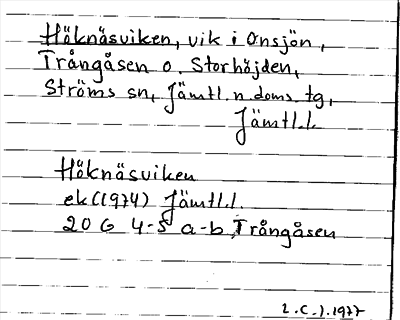 Höknäsviken, vik i Ansjön,
Trångåsen o. Storhöjden,
Ströms sn, Jämtl. n. doms. tg,
Jämtl.l.
Höknäsviken
ek (1974) Jämtl.l.
20 G 4-5 a-b, Trångåsen
L.C.J. 1977